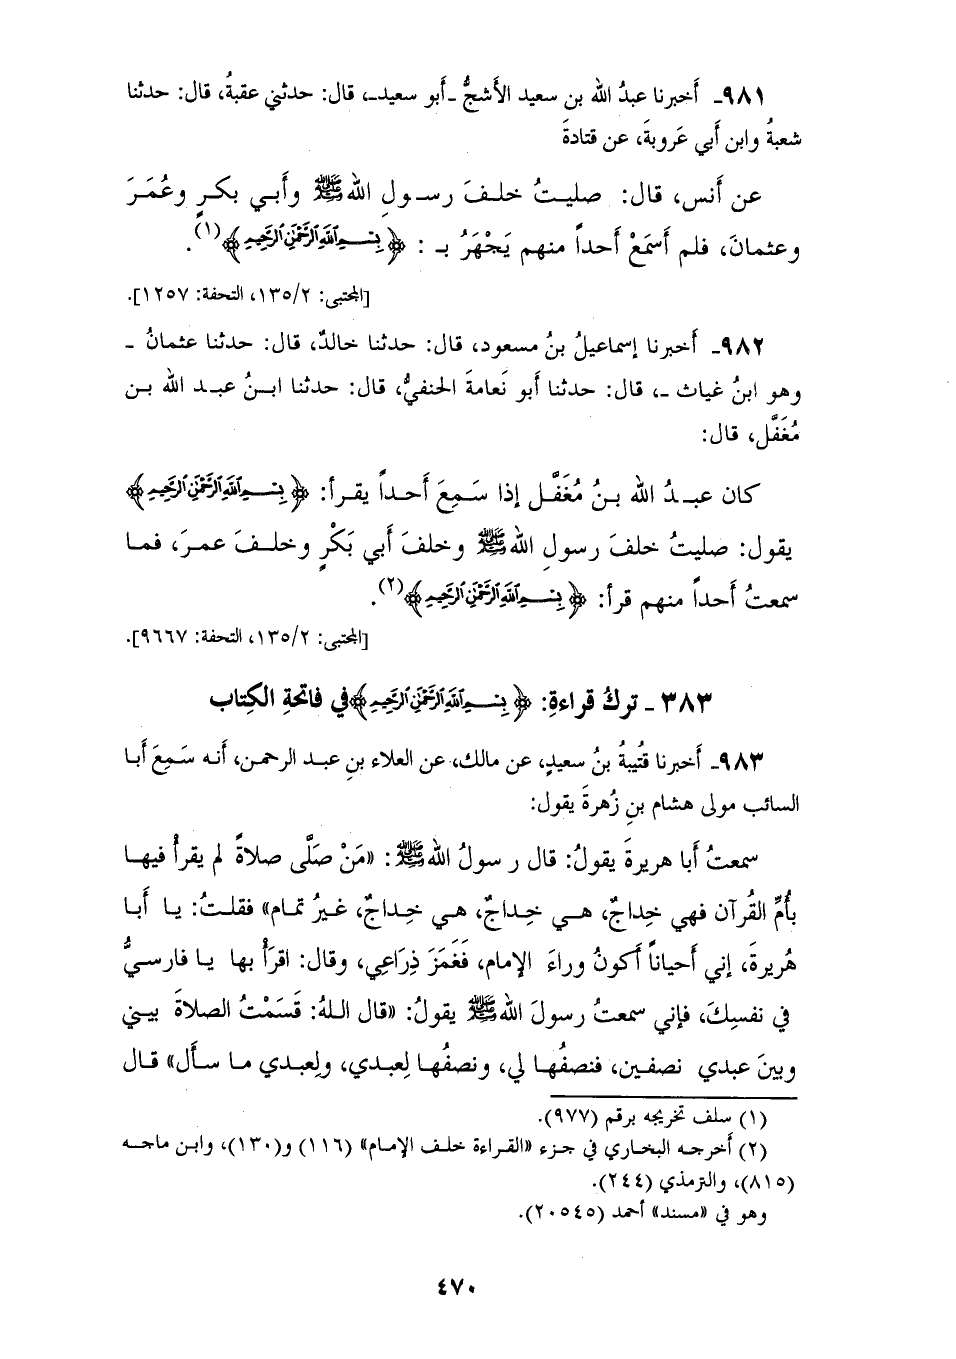 ٩٨١ـ أَخبرنا عبدُ الله بن سعيد الأَشجُّ ـأَبو سعيدـ، قال: حدثني عقبةُ، قال: حدثنا
شعبةُ وابن أَبي عَروبةَ، عن قتادةَ
عن أَنس، قال: صليتُ خلفَ رسولِ الله ﷺ وأَبي بكرٍ وعُمَرَ
وعثمانَ، فلم أَسمَعْ أَحداً منهم يَجْهَرُ بـ : ﴿بِسْمِ اللَّهِ الرَّحْمَٰنِ الرَّحِيمِ﴾(١).
[المجتبى: ١٣٥/٢، التحفة: ١٢٥٧].
٩٨٢ـ أَخبرنا إسماعيلُ بنُ مسعود، قال: حدثنا خالدٌ، قال: حدثنا عثمانُ ـ
وهو ابنُ غياث ـ، قال: حدثنا أَبو نَعامةَ الحنفيُّ، قال: حدثنا ابنُ عبد الله بن
مُغَفَّل، قال:
كان عبدُ الله بنُ مُغَفَّل إذا سَمِعَ أَحداً يقرأ: ﴿بِسْمِ اللَّهِ الرَّحْمَٰنِ الرَّحِيمِ﴾
يقول: صليتُ خلفَ رسولِ الله ﷺ وخلفَ أَبي بَكْرٍ وخلفَ عمرَ، فما
سمعتُ أَحداً منهم قرأ: ﴿بِسْمِ اللَّهِ الرَّحْمَٰنِ الرَّحِيمِ﴾(٢).
[المجتبى: ١٣٥/٢، التحفة: ٩٦٦٧].
٣٨٣ ـ تركُ قراءةِ: ﴿بِسْمِ اللَّهِ الرَّحْمَٰنِ الرَّحِيمِ﴾ في فاتحةِ الكِتاب
٩٨٣ـ أَخبرنا قُتيبةُ بنُ سعيدٍ، عن مالك، عن العلاء بنِ عبد الرحمن، أَنه سَمِعَ أَبا
السائب مولى هشام بنِ زُهرةَ يقول:
سمعتُ أَبا هريرةَ يقولُ: قال رسولُ الله ﷺ: «مَنْ صَلَّى صلاةً لم يقرأْ فيها
بأُمِّ القُرآن فهي خِداجٌ، هي خِداجٌ، هي خِداجٌ، غيرُ تمام» فقلتُ: يا أَبا
هُريرةَ، إني أَحياناً أَكونُ وراءَ الإمام، فَغَمَزَ ذِرَاعِي، وقال: اقرَأْ بها يا فارسيُّ
في نفسِكَ، فإني سمعتُ رسولَ الله ﷺ يقولُ: «قال اللهُ: قَسَمْتُ الصلاةَ بيني
وبينَ عبدي نصفين، فنصفُها لي، ونصفُها لِعبدي، ولِعبدي ما سأَل» قال
(١) سلف تخريجه برقم (٩٧٧).
(٢) أَخرجه البخاري في جزء «القراءة خلف الإمام» (١١٦) و(١٣٠)، وابن ماجه
(٨١٥)، والترمذي (٢٤٤).
وهو في «مسند» أحمد (٢٠٥٤٥).
٤٧٠